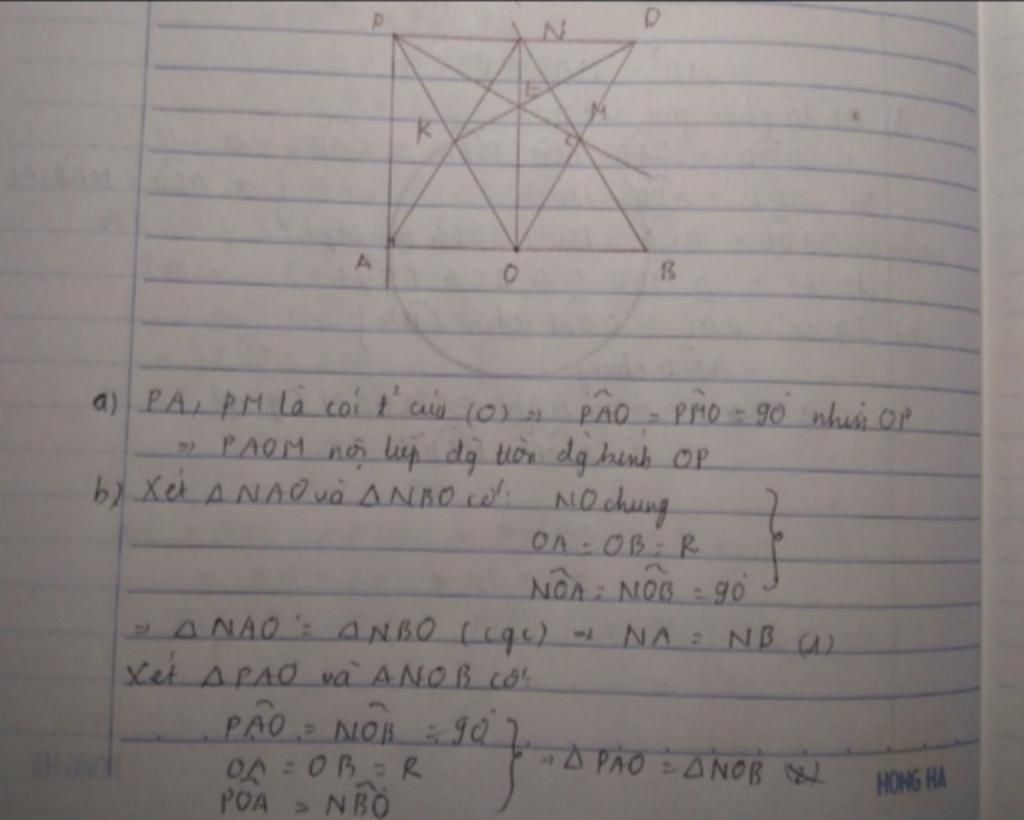 P N D
E
K M
A O B
a) PA, PM là cái t² của (O) => PÂO = PM̂O = 90° nhìn OP
=> PAOM nội tiếp đg tròn đg kính OP
b) Xét △NAO và △NBO có: NO chung
OA = OB = R
NÔA = NÔB = 90°
=> △NAO = △NBO (cgc) => NA = NB (1)
Xét △PAO và △NOB có:
PÂO = NÔB = 90°
OA = OB = R => △PAO = △NOB
PÔA = NB̂O
HONG HA